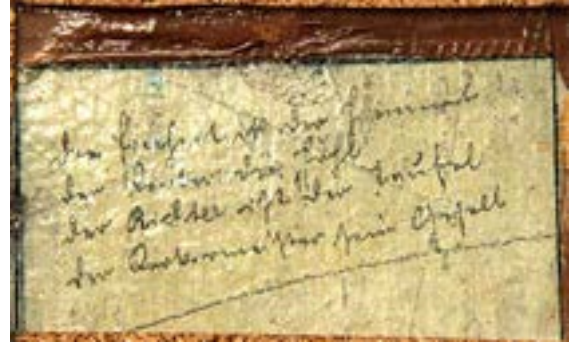 Die Freiheit ist der Himmel
der Kerker die Hölle
der Richter ist der Teufel
der Kerkermeister sein Gesell